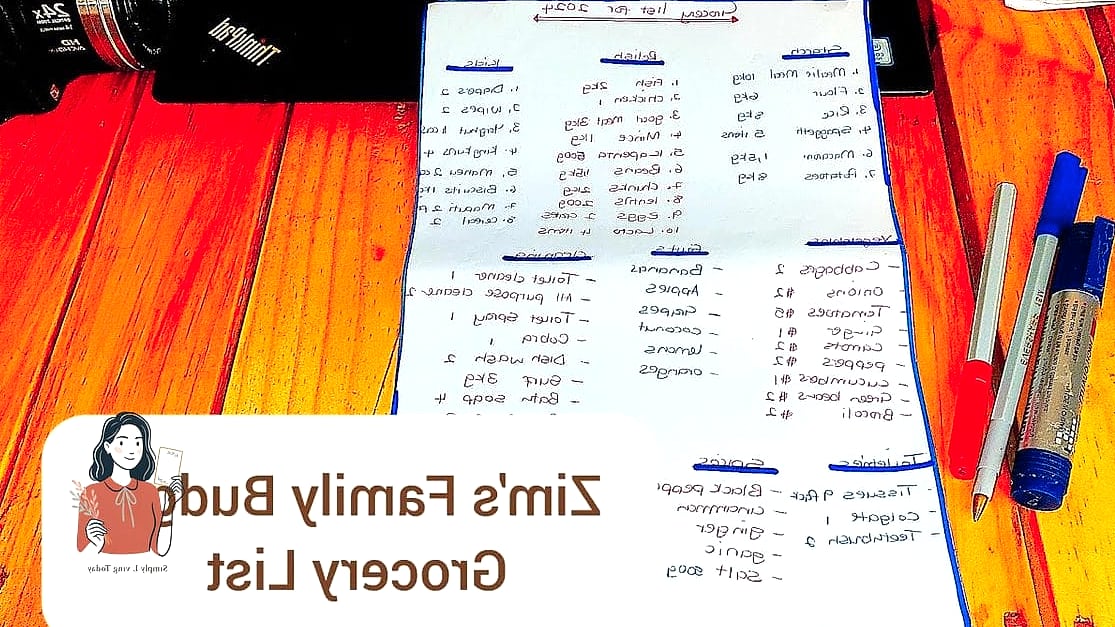 24x
HD
ThinkPad
Grocery list for 2024
Starch
1. Mealie Meal 10kg
2. Flour 6kg
3. Rice 8kg
4. Spaggeti 5 items
6. Macaroni 1,5kg
7. Potatoes 8kg
Relish
1. Fish 2kg
2. chicken 1
3. goat meat 3kg
4. Mince 1kg
5. Kapenta 500g
6. Beans 1.5kg
7. chunks 2kg
8. lentils 200g
9. Eggs 2 crates
10. Lacto 4 items
Kids
1. Diapers 2
2. Wipes 2
3. Yoghut
4. kingkurls 4
5.
6. Biscuits
7. Maputi 2
8. cereal 2
Vegetables
- Cabbages 2
Onions $2
- Tomatoes $5
- Ginger $1
- Carrots $2
- peppers $2
- cucumbers $1
- Green beans $2
- Brocoli $2
Fruits
- Bananas
- Apples
- Grapes
- coconut
- lemons
- oranges
Cleaning
- Toilet cleaner 1
- All purpose cleaner 2
- Toilet spray 1
- Cobra 1
- Dish wash 2
- Surf 3kg
- Bath soap 4
Toiletries
- Tissues 9 Pack
- Colgate 1
- Teethbrush 2
Spices
- Black pepper
- cinnimon
- ginger
- garlic
- Salt 500g
Zim's Family Bud
Grocery List
Simply Living Today